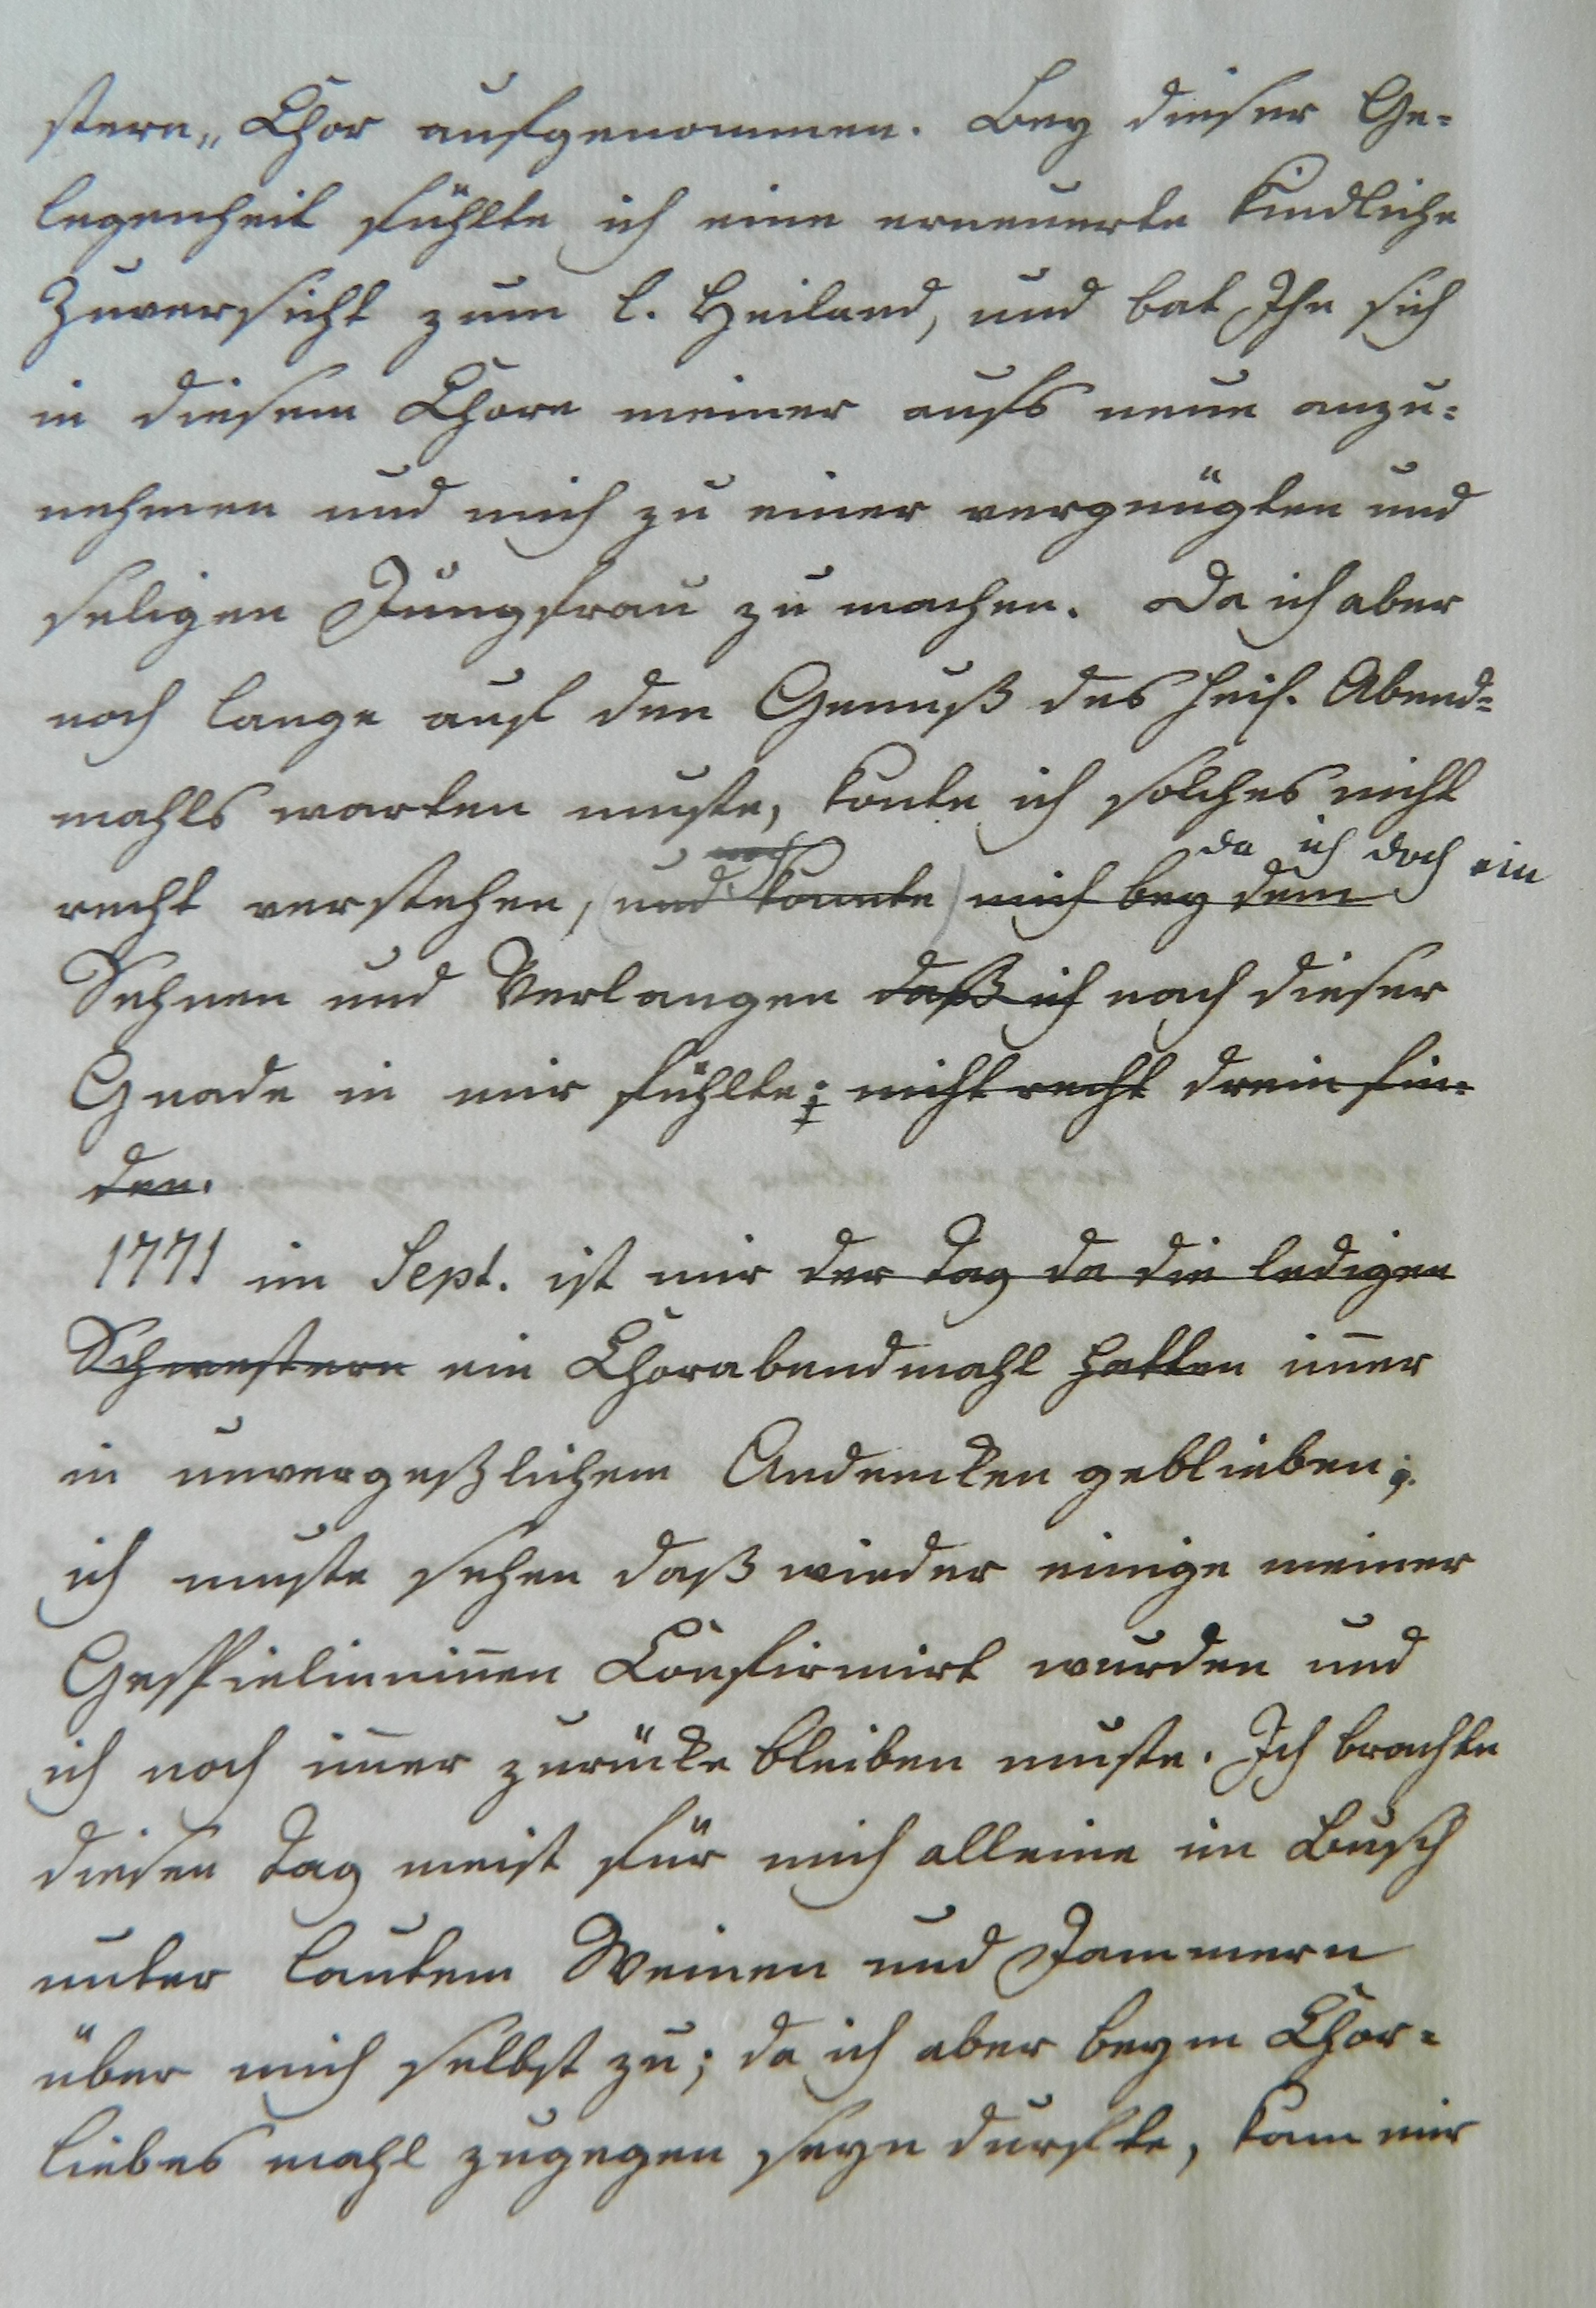 stern„ Chor aufgenommen. Bey dieser Ge-
legenheit fühlte ich eine erneuerte kindliche
Zuversicht zum l. Heiland, und bat Ihn sich
in diesem Chore meiner aufs neue anzu-
nehmen und mich zu einer vergnügten und
seligen Jungfrau zu machen. Da ich aber
noch lange auf den Genuß des heil. Abend-
mahls warten muste, konte ich solches nicht
da ich doch ein
recht verstehen, (und konnte) mich bey dem
Sehnen und Verlangen daß ich nach dieser
Gnade in mir fühlte; nicht recht drein fin-
den.
1771 im Sept. ist mir der Tag da die ledigen
Schwestern ein Chorabendmahl hatten im̅er
in unvergeßlichem Andencken geblieben;
ich muste sehen daß wieder einige meiner
Gespielinnin̅en Confirmirt wurden und
ich noch im̅er zurücke bleiben muste. Ich brachte
diesen Tag meist für mich alleine im Busch
unter lautem Weinen und Jammern
über mich selbst zu; da ich aber beym Chor-
liebes mahl zugegen seyn durfte, kam mir